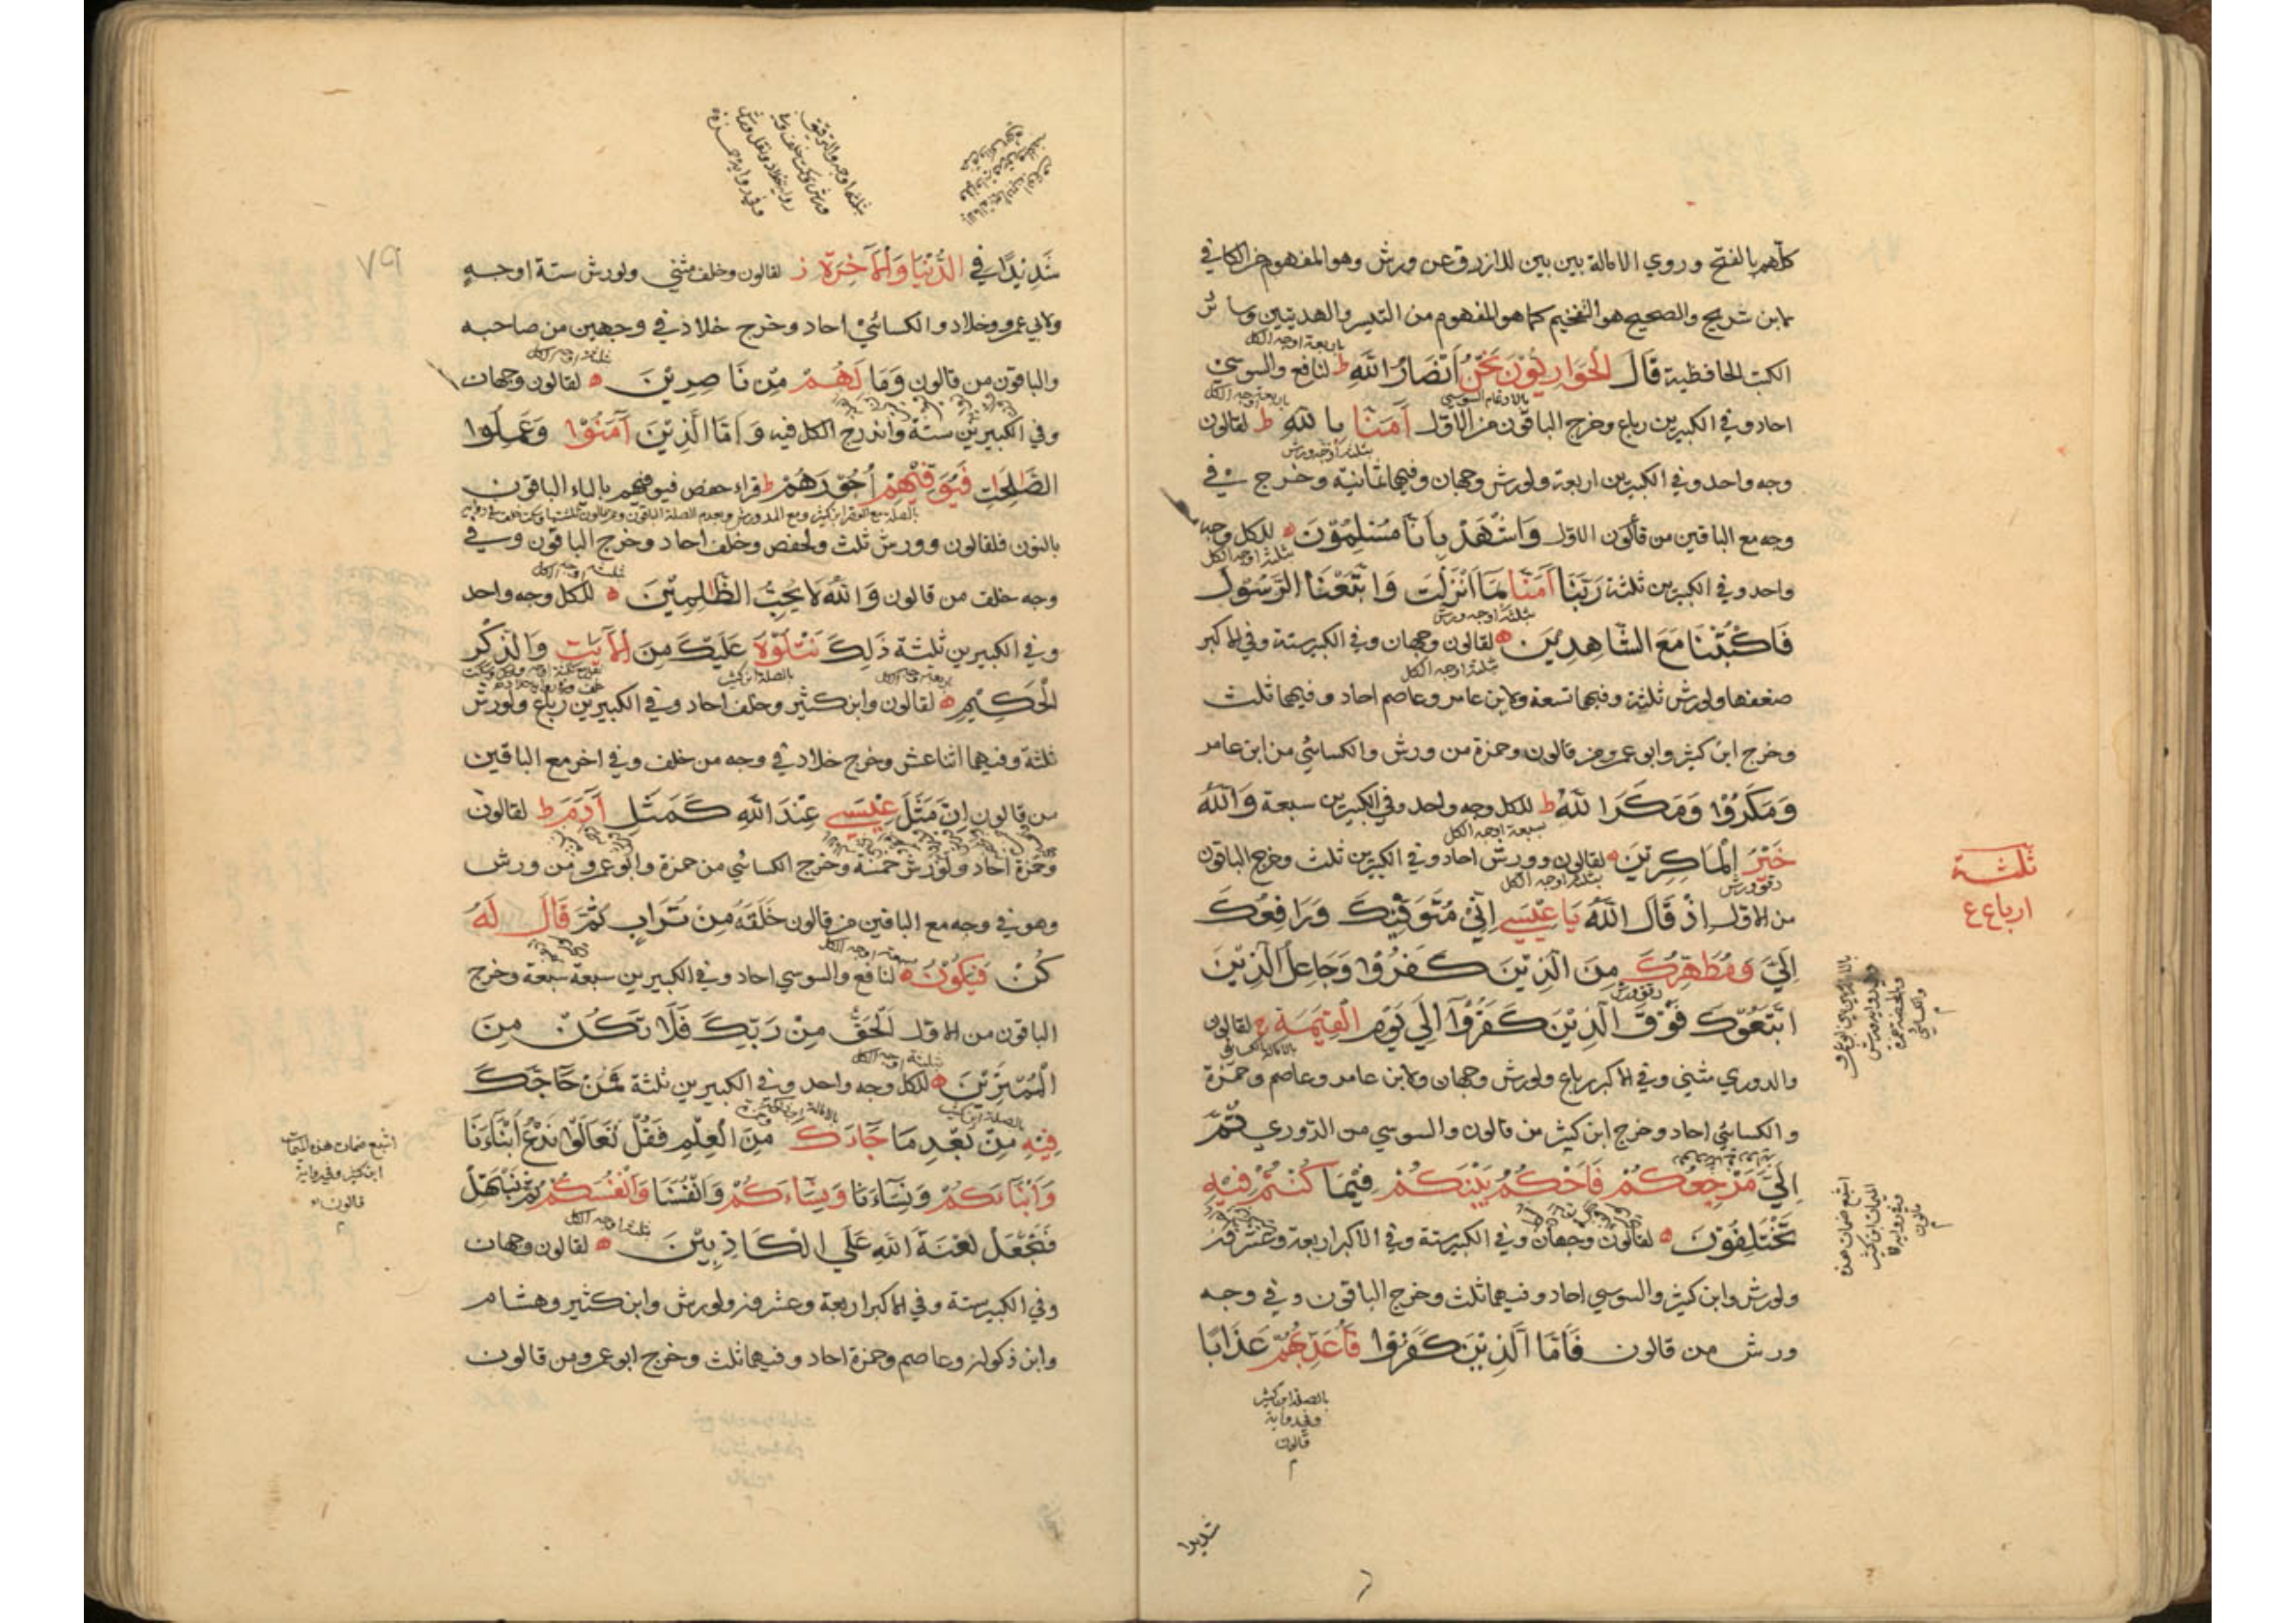 كلّهم بالفتح وروي الامالة بين بين للازرق عن ورش وهو المفهوم من الكافي
لابن شريح والصحيح هو التفخيم كما هو المفهوم من التيسير والهديتين وسائر
الكتب الحافظية قَالَ الْحَوَارِيُّوْنَ نَحْنُ أَنْصَارُ اللّٰهِ ط لنافع والسوسي
احاد وفي الكبيرين رباع وخرج الباقون من الاول آمَنَّا بِاللّٰهِ ط لقالون
وجه واحد وفي الكبيرين اربعة ولورش وجهان وفيهما ثمانية وخرج في
وجه مع الباقين من قالون الاول وَاشْهَدْ بِأَنَّا مُسْلِمُوْنَ ه للكل وجه
واحد وفي الكبيرين ثلثة رَبَّنَا آمَنَّا بِمَا اَنْزَلْتَ وَاتَّبَعْنَا الرَّسُوْلَ
فَاكْتُبْنَا مَعَ الشَّاهِدِيْنَ ه لقالون وجهان وفي الكبير ستة وفي الاكبر
ضعفها ولورش ثلثة وفيهما تسعة ولابن عامر وعاصم احاد وفيهما ثلث
وخرج ابن كثير وابو عمرو من قالون وحمزة من ورش والكسائي من ابن عامر
وَمَكَرُوْا وَمَكَرَ اللّٰهُ ط للكل وجه واحد وفي الكبيرين سبعة وَاللّٰهُ
خَيْرُ الْمَاكِرِيْنَ ه لقالون وورش احاد وفي الكبيرين ثلث وخرج الباقون
من الاول اِذْ قَالَ اللّٰهُ يَا عِيْسٰى اِنِّيْ مُتَوَفِّيْكَ وَرَافِعُكَ
اِلَيَّ وَمُطَهِّرُكَ مِنَ الَّذِيْنَ كَفَرُوْا وَجَاعِلُ الَّذِيْنَ
اتَّبَعُوْكَ فَوْقَ الَّذِيْنَ كَفَرُوْا اِلٰى يَوْمِ الْقِيٰمَةِ ج لقالون
والدوري مثنى وفي الاكبر رباع ولورش وجهان ولابن عامر وعاصم وحمزة
والكسائي احاد وخرج ابن كثير من قالون والسوسي من الدوري ثُمَّ
اِلَيَّ مَرْجِعُكُمْ فَاَحْكُمُ بَيْنَكُمْ فِيْمَا كُنْتُمْ فِيْهِ
تَخْتَلِفُوْنَ ه لقالون وجهان وفي الكبير ستة وفي الاكبر اربعة وعشرون
ولورش وابن كثير والسوسي احاد وفيهما ثلث وخرج الباقون وفي وجه
ورش من قالون فَاَمَّا الَّذِيْنَ كَفَرُوْا فَاُعَذِّبُهُمْ عَذَابًا
ثلثة
ارباع ع
بالصلة ابن كثير
وفي رواية
قالون
شديدا
٧٩
شَدِيْدًا فِي الدُّنْيَا وَالْآخِرَةِ ز لقالون وخلف مثنى ولورش ستة اوجه
ولابي عمرو وخلاد والكسائي احاد وخرج خلاد في وجهين من صاحبه
والباقون من قالون وَمَا لَهُمْ مِنْ نَاصِرِيْنَ ه لقالون وجهان
وفي الكبيرين ستة واندرج الكل فيه وَاَمَّا الَّذِيْنَ آمَنُوْا وَعَمِلُوا
الصَّالِحَاتِ فَيُوَفِّيْهِمْ اُجُوْرَهُمْ ط قراء حفص فيوفيهم بالياء الباقون
بالنون فلقالون وورش ثلث ولحفص وخلف احاد وخرج الباقون وفي
وجه خلف من قالون وَاللّٰهُ لَا يُحِبُّ الظّٰلِمِيْنَ ه للكل وجه واحد
وفي الكبيرين ثلثة ذٰلِكَ نَتْلُوْهُ عَلَيْكَ مِنَ الْآيٰتِ وَالذِّكْرِ
الْحَكِيْمِ ه لقالون وابن كثير وخلف احاد وفي الكبيرين رباع ولورش
ثلثة وفيهما اثنا عشر وخرج خلاد في وجه من خلف وفي اخر مع الباقين
من قالون اِنَّ مَثَلَ عِيْسٰى عِنْدَ اللّٰهِ كَمَثَلِ آدَمَ ط لقالون
وحمزة احاد ولورش خمسة وخرج الكسائي من حمزة وابو عمرو من ورش
وهو في وجه مع الباقين من قالون خَلَقَهُ مِنْ تُرَابٍ ثُمَّ قَالَ لَهُ
كُنْ فَيَكُوْنُ ه لنافع والسوسي احاد وفي الكبيرين سبعة سبعة وخرج
الباقون من الاول اَلْحَقُّ مِنْ رَبِّكَ فَلَا تَكُنْ مِنَ
الْمُمْتَرِيْنَ ه للكل وجه واحد وفي الكبيرين ثلثة فَمَنْ حَاجَّكَ
فِيْهِ مِنْ بَعْدِ مَا جَاءَكَ مِنَ الْعِلْمِ فَقُلْ تَعَالَوْا نَدْعُ اَبْنَاءَنَا
وَاَبْنَاءَكُمْ وَنِسَاءَنَا وَنِسَاءَكُمْ وَاَنْفُسَنَا وَاَنْفُسَكُمْ ثُمَّ نَبْتَهِلْ
فَنَجْعَلْ لَعْنَةَ اللّٰهِ عَلَى الْكَاذِبِيْنَ ه لقالون وجهان
وفي الكبير ستة وفي الاكبر اربعة وعشرون ولورش وابن كثير وهشام
وابن ذكوان وعاصم وحمزة احاد وفيهما ثلث وخرج ابو عمرو من قالون
اشبع ضمات هذه الميمات
ابن كثير وفي رواية
قالون